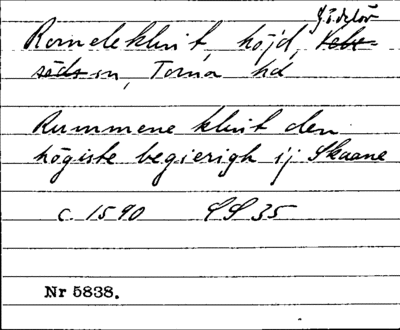 Romeleklint, höjd, Veberödssn, Torna hd
Rummene klint den
högiste begierigh ij Skaane
c. 1590 SS 35
Nr 5838.